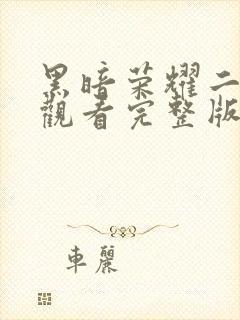 黑暗荣耀二
觀看完整版
車麗